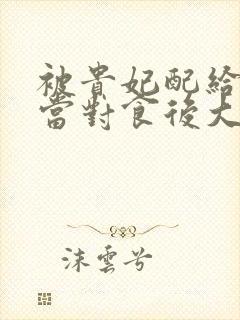 被貴妃配給
當對食後大
沫雲兮